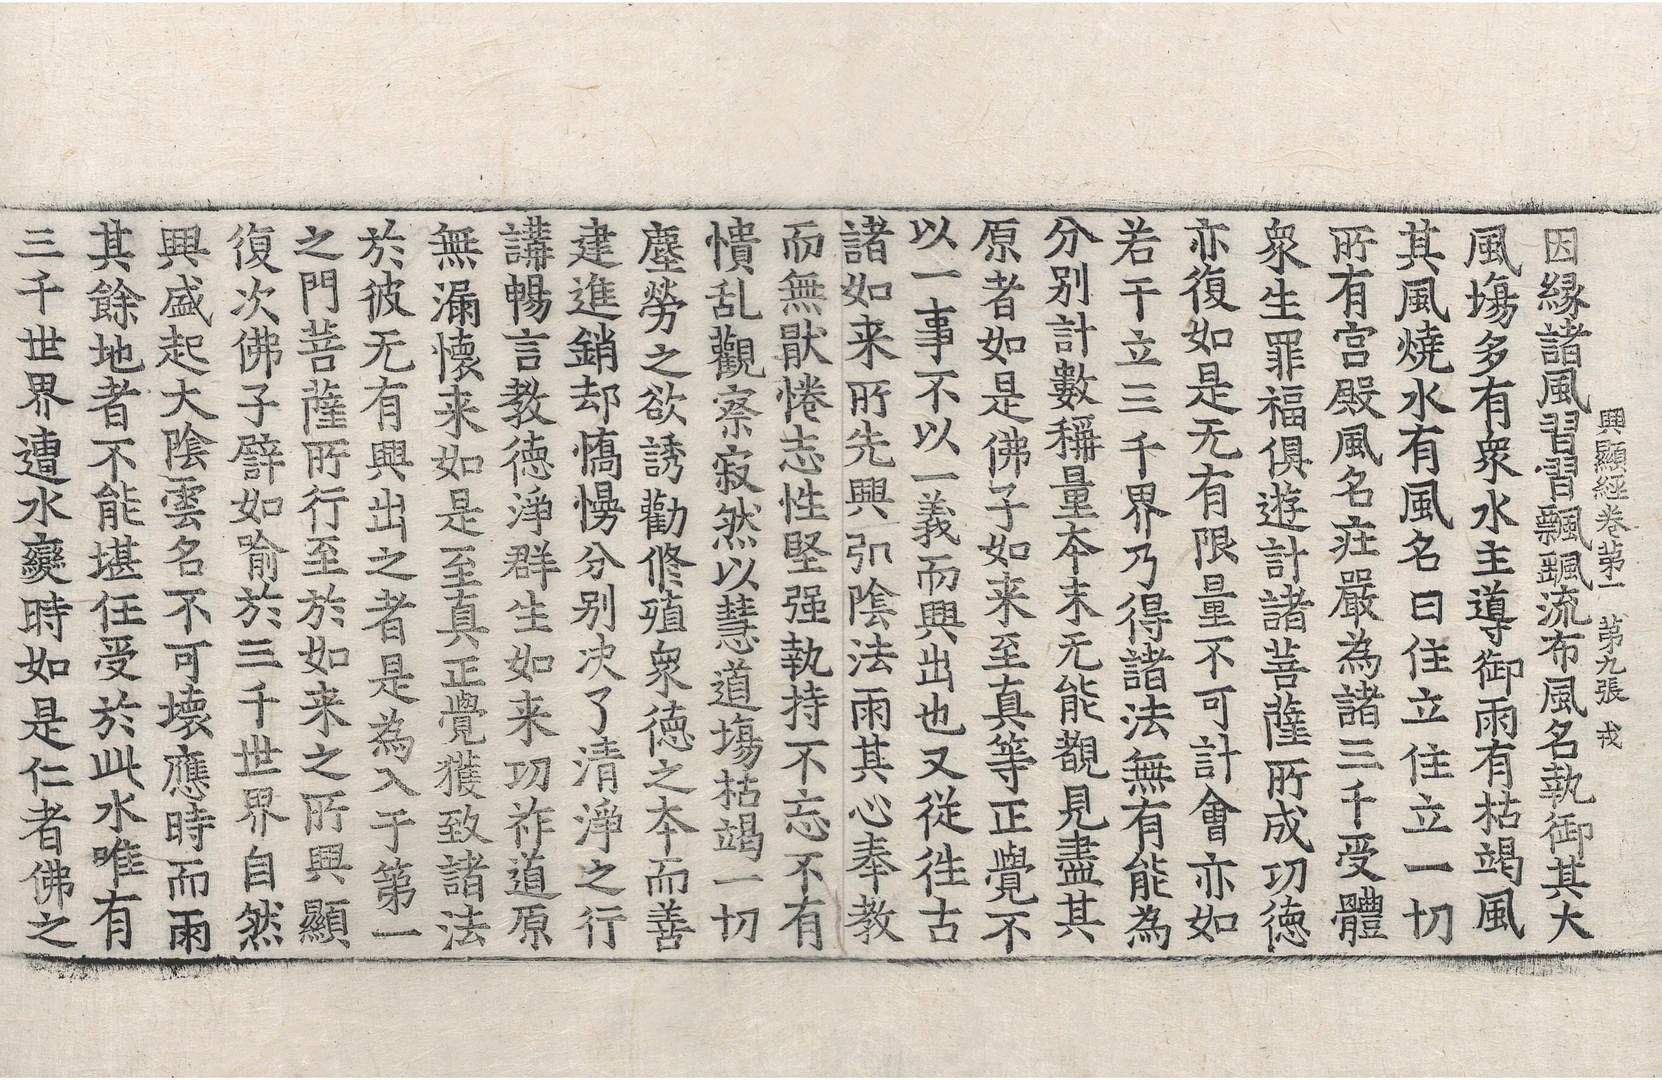 興顯經卷第一 第九張 戎
因緣諸風習習飄颻流布風名執御其大
風塲多有衆水主導御雨有枯竭風
其風燒水有風名曰住立住立一切
所有宮殿風名莊嚴為諸三千受體
衆生罪福俱遊計諸菩薩所成功德
亦復如是无有限量不可計會亦如
若干立三千界乃得諸法無有能為
分别計數稱量夲末无能覩見盡其
原者如是佛子如来至真等正覺不
以一事不以一義而興出也又從往古
諸如来所先興弘陰法雨其心奉教
而無猒惓志性堅强執持不忘不有
憒乱觀察寂然以慧道塲枯竭一切
塵勞之欲誘勸修殖衆德之夲而善
建進銷却憍慢分别决了清淨之行
講暢言教德淨群生如来功祚道原
無漏懷来如是至真正覺獲致諸法
於彼无有興出之者是為入于第一
之門菩薩所行至於如来之所興顯
復次佛子譬如喻於三千世界自然
興盛起大陰雲名不可壞應時而雨
其餘地者不能堪任受於此水唯有
三千世界遭水變時如是仁者佛之